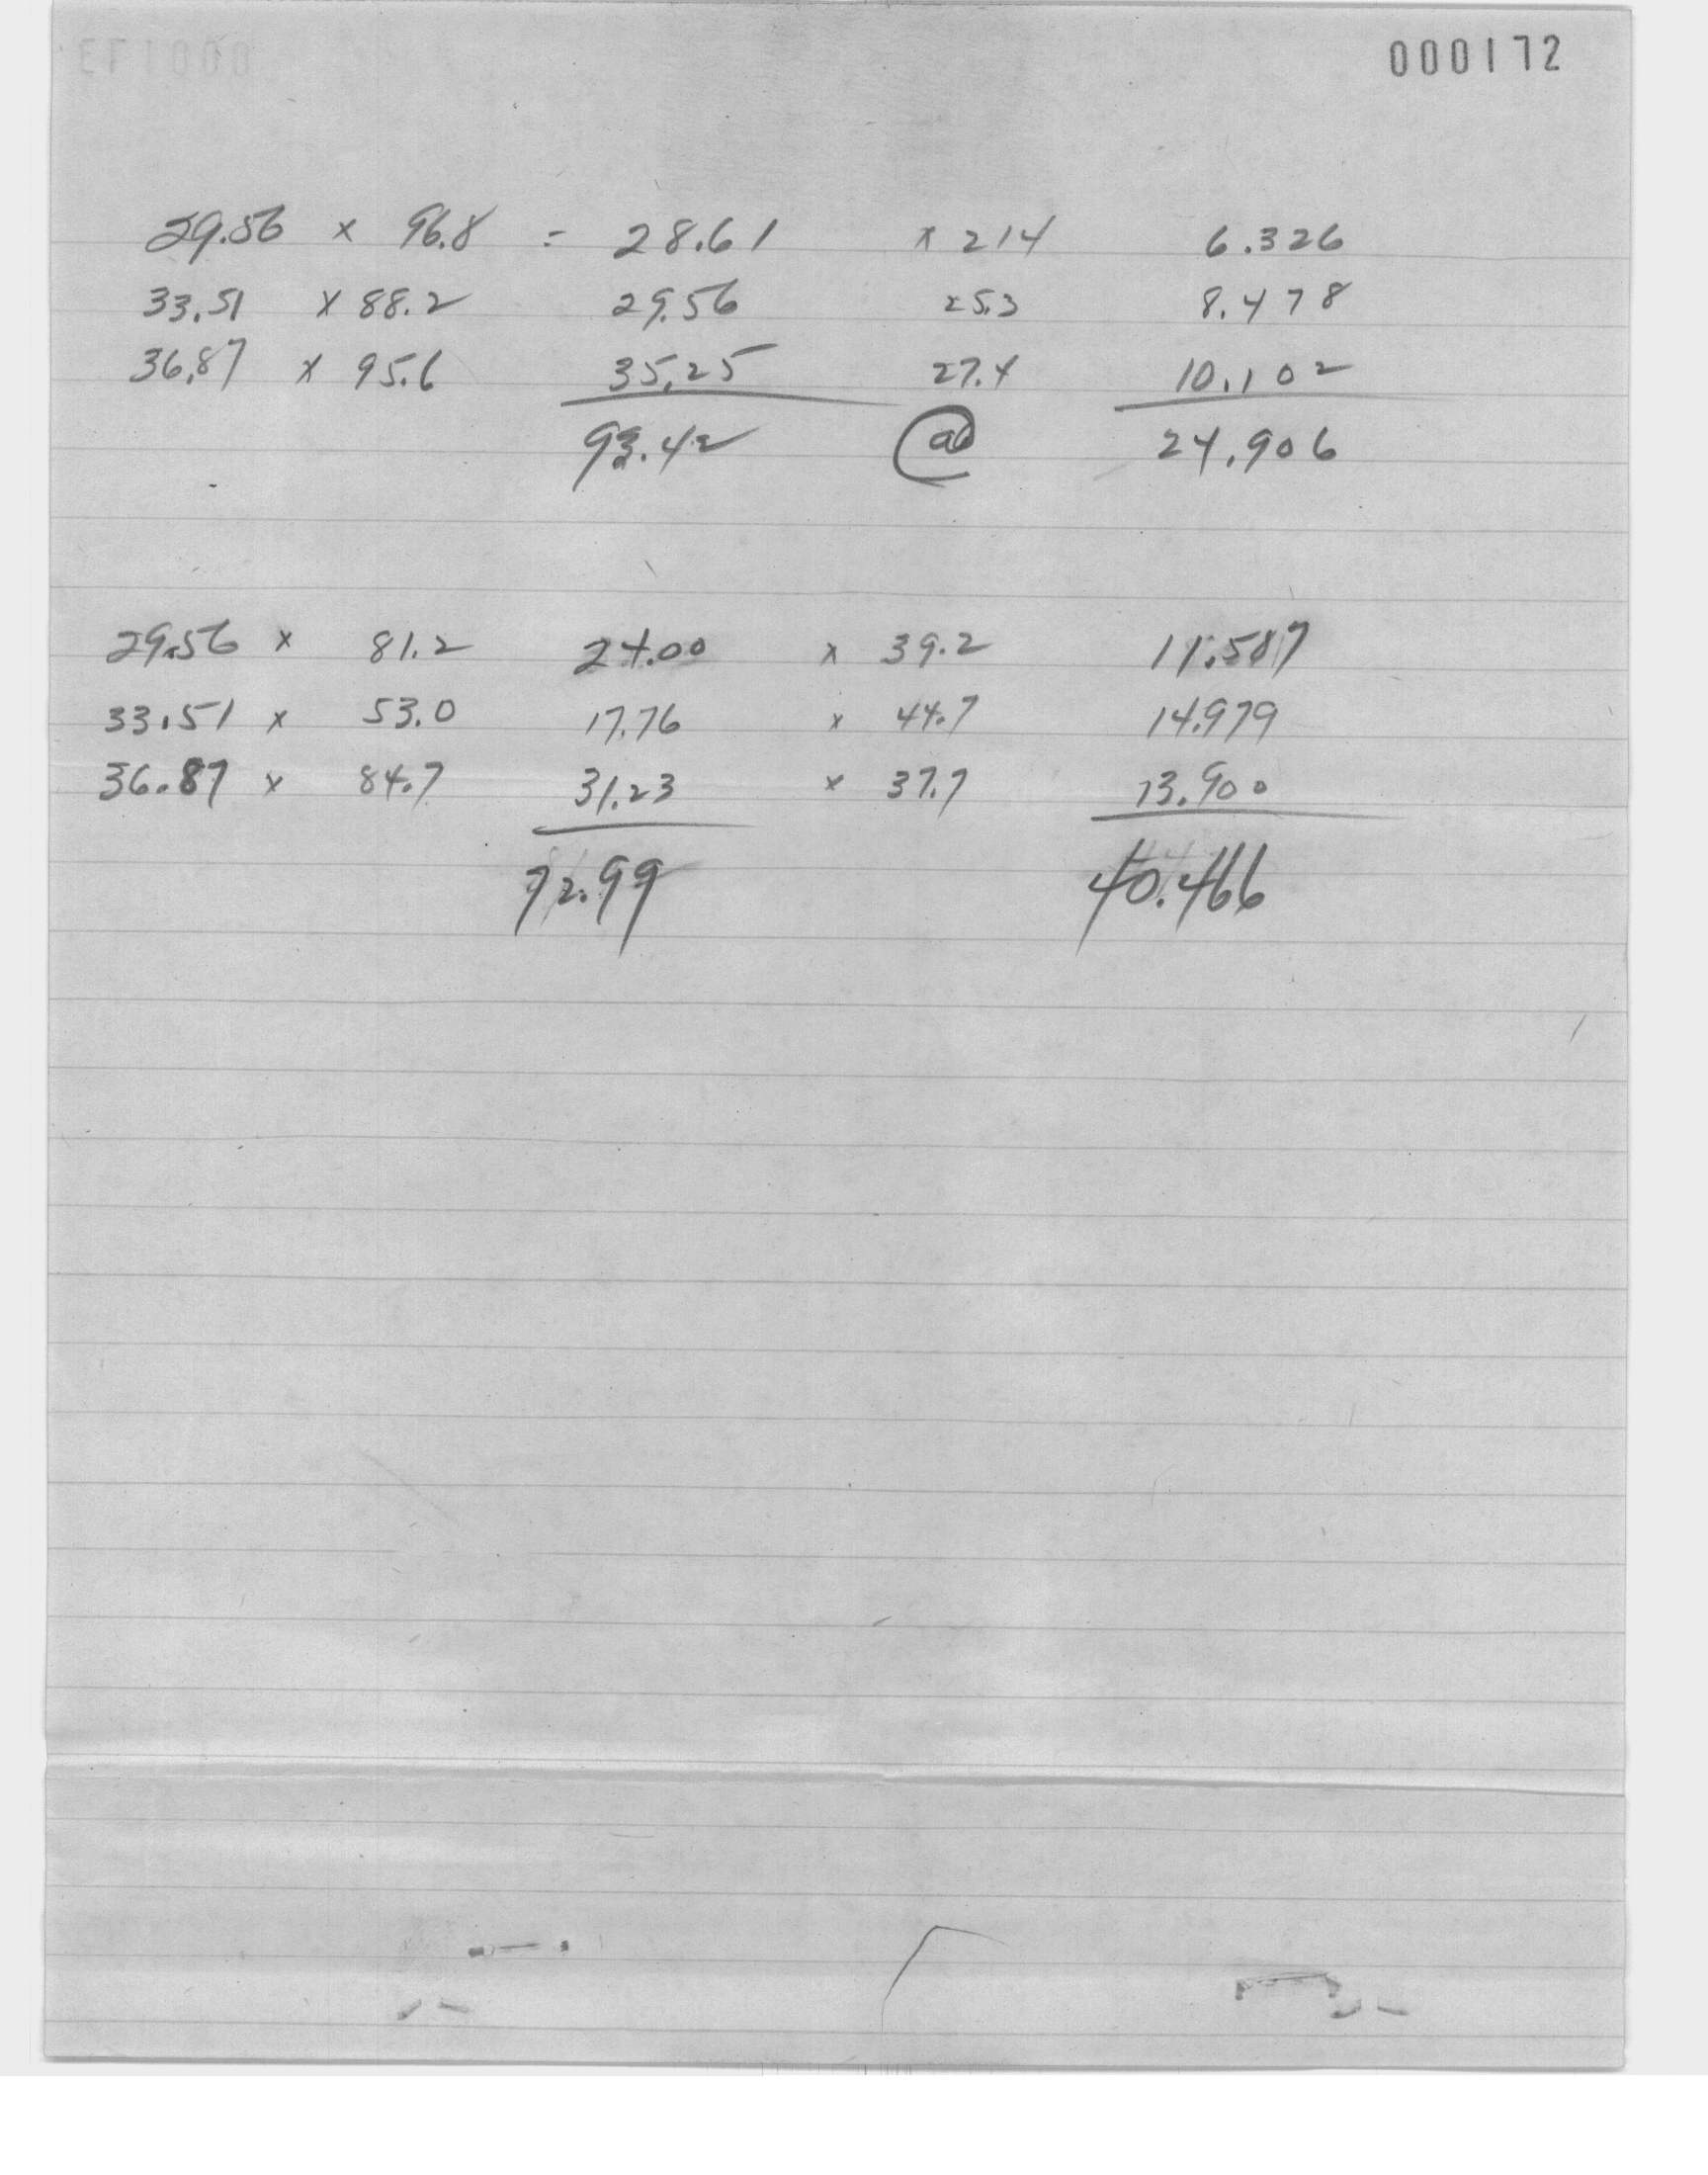 000172
29.56 x 96.8 = 28.61 x 214 6.326
33.51 x 88.2 29.56 25.3 8.478
36.87 x 95.6 35.25 27.4 10.102
93.42 24.906
29.56 x 81.2 24.00 x 39.2 11.587
33.51 x 53.0 17.76 x 44.7 14.979
36.87 x 84.7 31.23 x 37.7 13.900
72.99 40.466